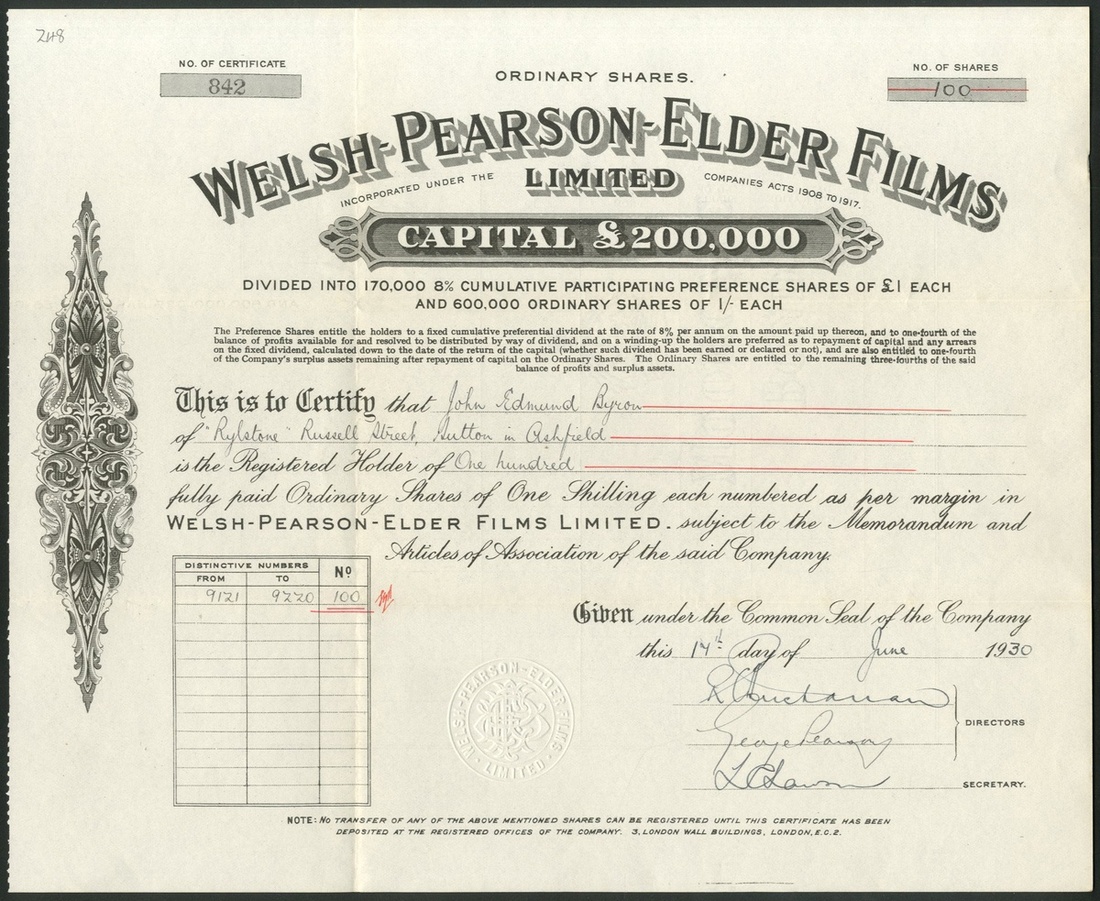 248
NO. OF CERTIFICATE
842
ORDINARY SHARES.
NO. OF SHARES
100
WELSH-PEARSON-ELDER FILMS
INCORPORATED UNDER THE LIMITED COMPANIES ACTS 1908 TO 1917.
CAPITAL £200,000
DIVIDED INTO 170,000 8% CUMULATIVE PARTICIPATING PREFERENCE SHARES OF £1 EACH
AND 600,000 ORDINARY SHARES OF 1/- EACH
The Preference Shares entitle the holders to a fixed cumulative preferential dividend at the rate of 8% per annum on the amount paid up thereon, and to one-fourth of the
balance of profits available for and resolved to be distributed by way of dividend, and on a winding-up the holders are preferred as to repayment of capital and any arrears
on the fixed dividend, calculated down to the date of the return of the capital (whether such dividend has been earned or declared or not), and are also entitled to one-fourth
of the Company's surplus assets remaining after repayment of capital on the Ordinary Shares. The Ordinary Shares are entitled to the remaining three-fourths of the said
balance of profits and surplus assets.
This is to Certify that John Edmund Byron
of "Rylstone" Russell Street, Sutton in Ashfield
is the Registered Holder of One hundred
fully paid Ordinary Shares of One Shilling each numbered as per margin in
WELSH-PEARSON-ELDER FILMS LIMITED. subject to the Memorandum and
Articles of Association of the said Company.
DISTINCTIVE NUMBERS
FROM TO No
9121 9220 100
Given under the Common Seal of the Company
this 17th day of June 1930
R Buchanan
George Pearson
DIRECTORS
SECRETARY.
WELSH-PEARSON-ELDER FILMS
LIMITED
NOTE: NO TRANSFER OF ANY OF THE ABOVE MENTIONED SHARES CAN BE REGISTERED UNTIL THIS CERTIFICATE HAS BEEN
DEPOSITED AT THE REGISTERED OFFICES OF THE COMPANY. 3, LONDON WALL BUILDINGS, LONDON, E.C.2.